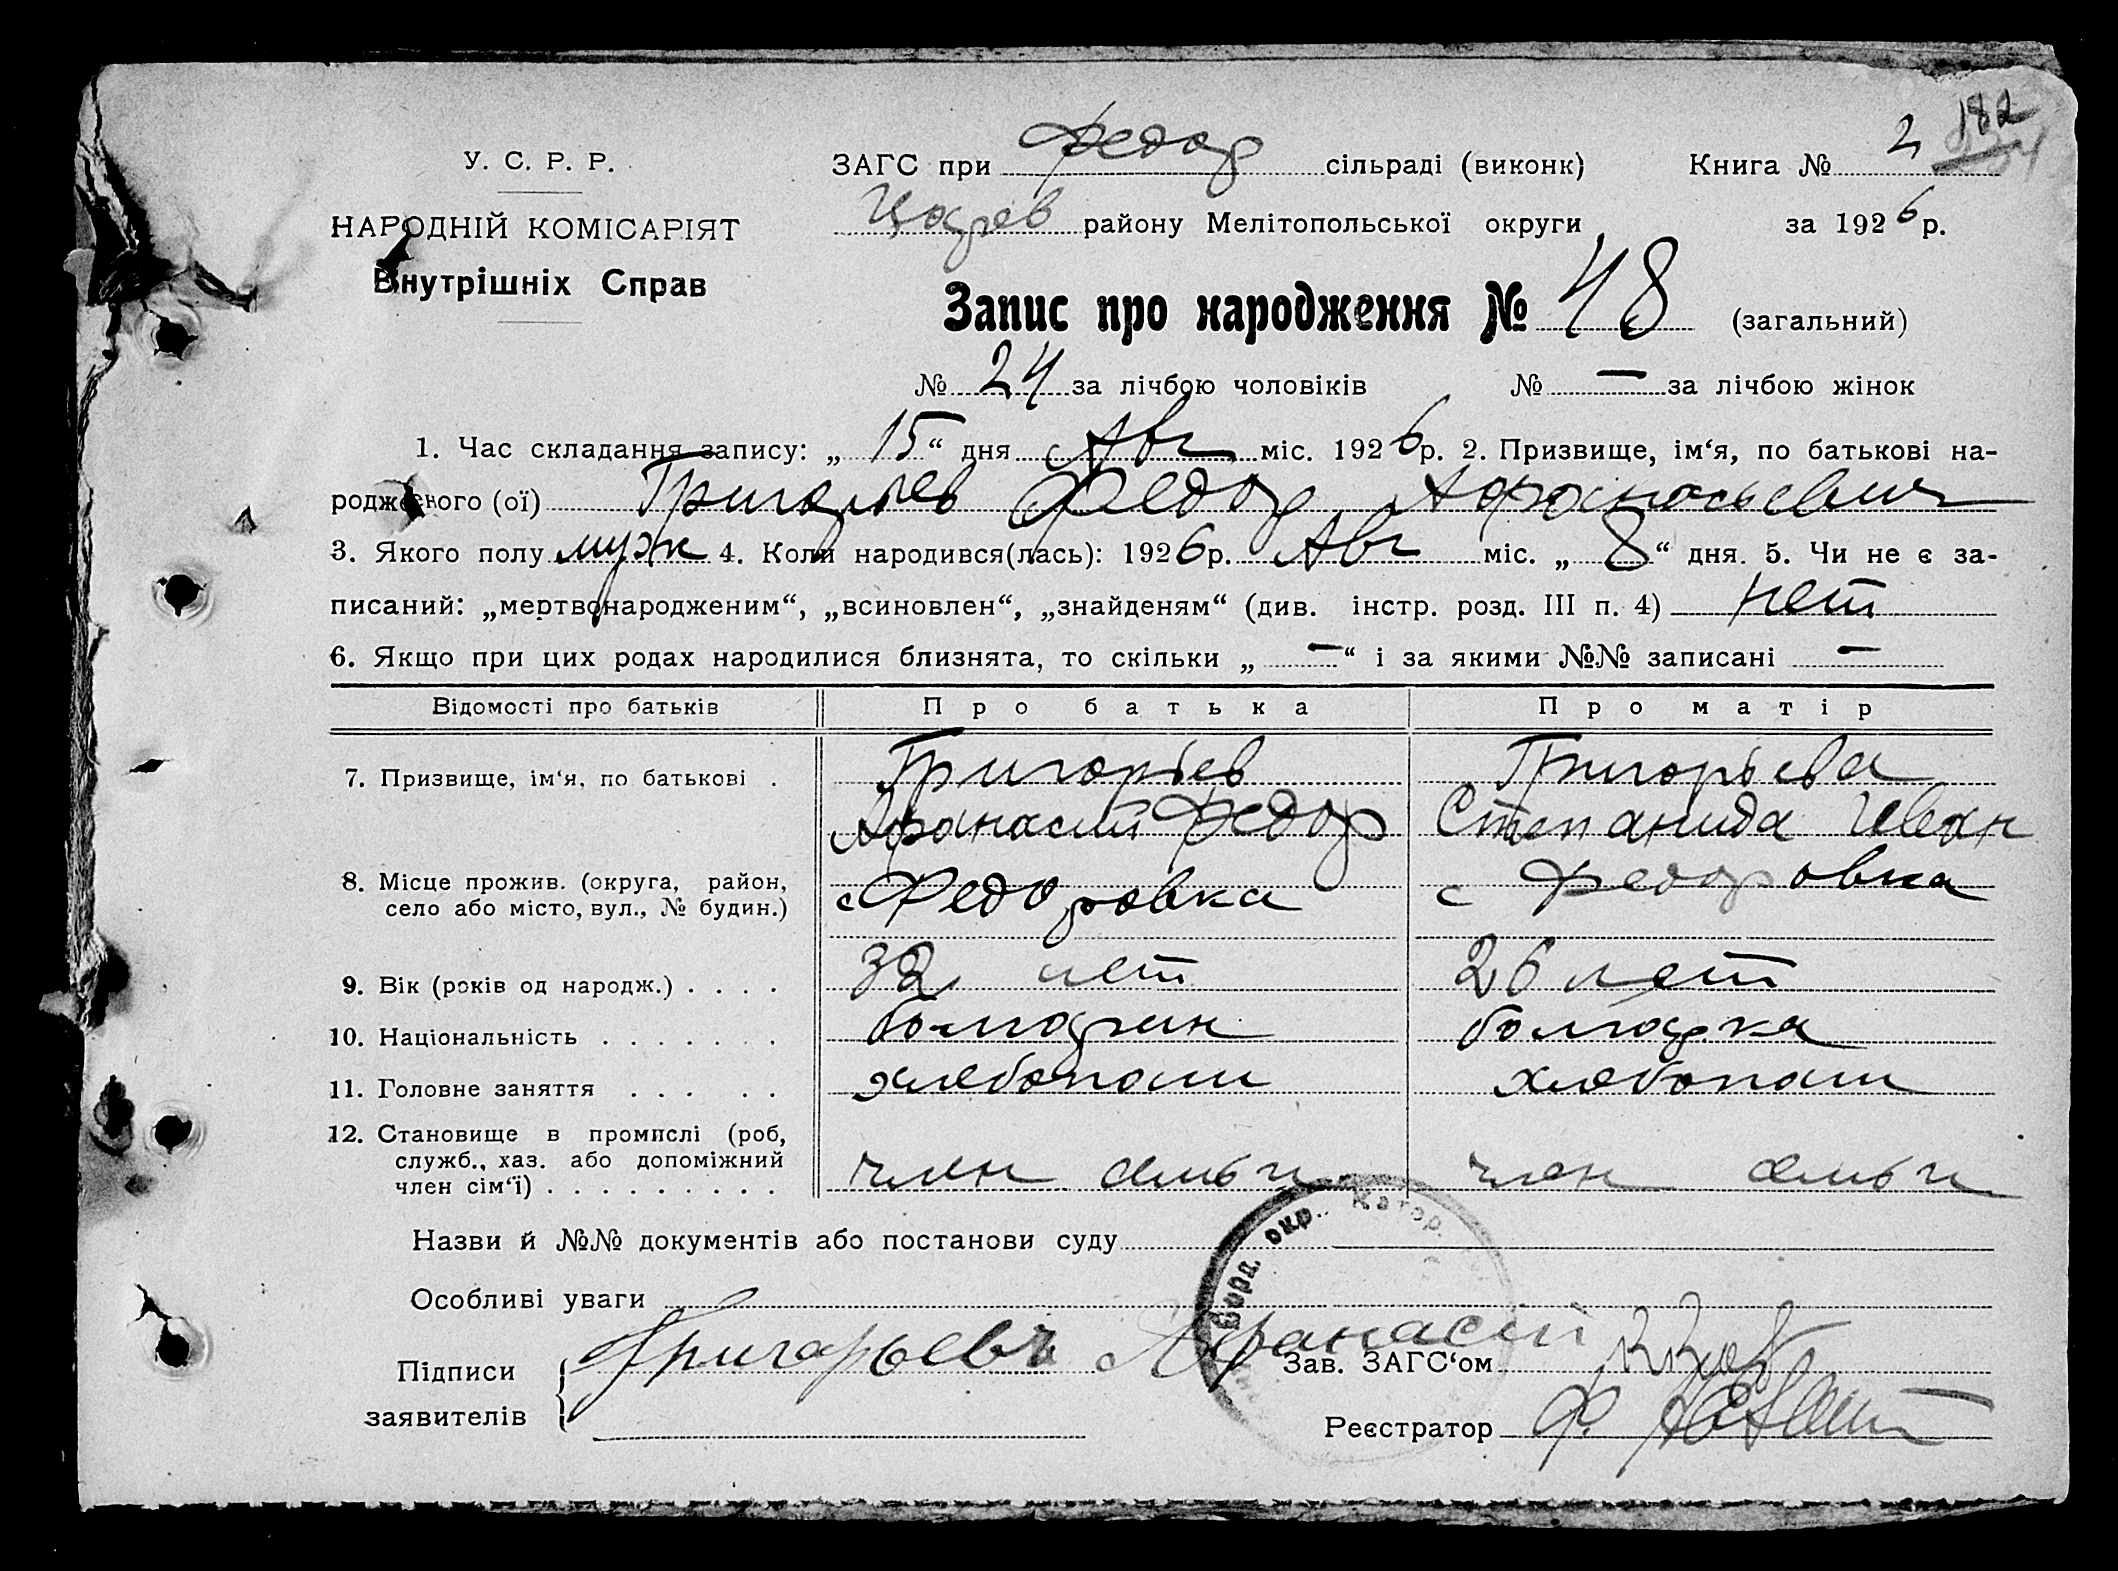 182
У. С. Р. Р.
ЗАГС при Федор сільраді (виконк)
Книга № 2
НАРОДНІЙ КОМІСАРІЯТ
Внутрішніх Справ
Цадрев району Мелітопольської округи
за 1926 р.
Запис про народження № 48 (загальний)
№ 24 за лічбою чоловіків № — за лічбою жінок
1. Час складання запису: „ 15 “ дня Авг міс. 1926 р. 2. Призвище, ім‘я, по батькові на-
родженого (ої) Григорьев Федор Афанасьевич
3. Якого полу муж 4. Коли народився(лась): 1926 р. Авг міс. „ 8 “ дня. 5. Чи не є за-
писаний: „мертвонародженим“, „всиновлен“, „знайденям“ (див. інстр. розд. III п. 4) нет
6. Якщо при цих родах народилися близнята, то скільки „ — “ і за якими №№ записані —
Відомості про батьків Про батька Про матір
7. Призвище, ім‘я, по батькові . Григорьев Григорьева
Афанасий Федор Степанида Иван
8. Місце прожив. (округа, район,
село або місто, вул., № будин.) с Федоровка с Федоровка
9. Вік (років од народж.) . . . . 32 лет 26 лет
10. Національність . . . . . . . болгарин болгарка
11. Головне заняття . . . . . хлебопаш хлебопаш
12. Становище в промислі (роб,
служб., хаз. або допоміжний
член сім‘ї) . . . . . . . . . член семьи член семьи
Назви й №№ документів або постанови суду
окр. Катор.
Особливі уваги
Підписи
заявителів
Григарьевъ Афанасий
Зав. ЗАГС‘ом
Реєстратор Ф.